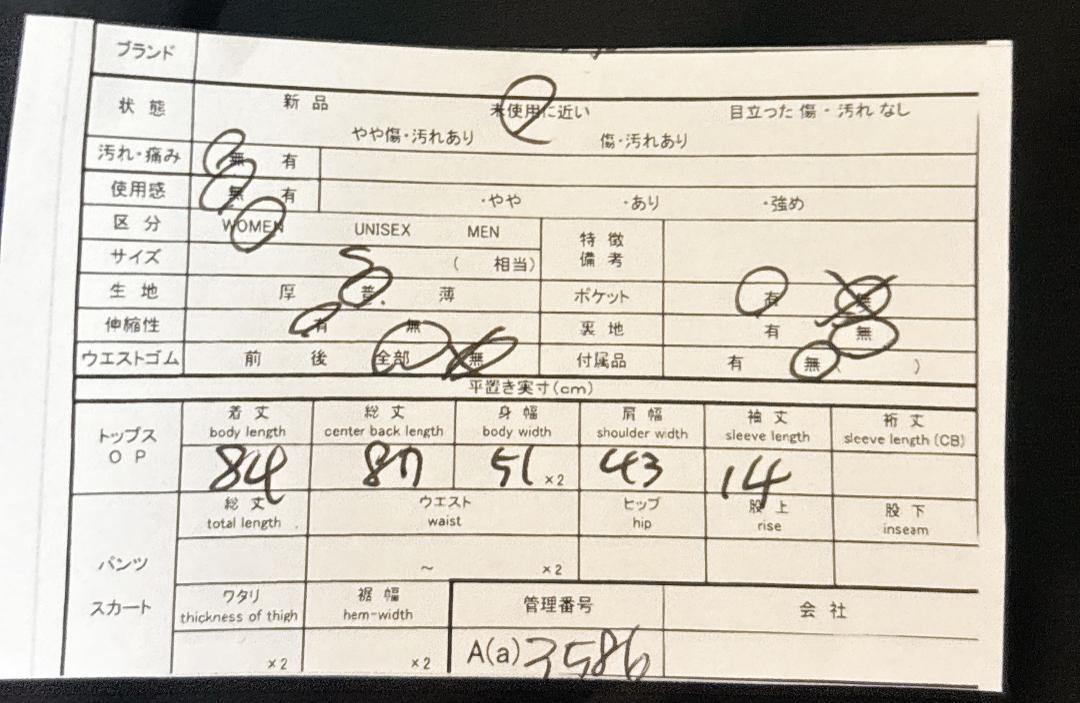 ブランド
状態 新品 未使用に近い 目立った傷・汚れなし
やや傷・汚れあり 傷・汚れあり
汚れ・痛み 無 有
使用感 無 有 ・やや ・あり ・強め
区分 WOMEN UNISEX MEN 特徴備考
サイズ S ( 相当)
生地 厚 普 薄 ポケット 有 無
伸縮性 有 無 裏地 有 無
ウエストゴム 前 後 全部 無 付属品 有 無 ( )
平置き実寸(cm)
トップス OP 着丈 総丈 身幅 肩幅 袖丈 裄丈
body length center back length body width shoulder width sleeve length sleeve length (CB)
84 51 ×2 43 14
総丈 ウエスト ヒップ 股上 股下
total length waist hip rise inseam
パンツ ~ ×2
スカート ワタリ 裾幅 管理番号 会社
thickness of thigh hem-width
×2 ×2 A(a) 3586